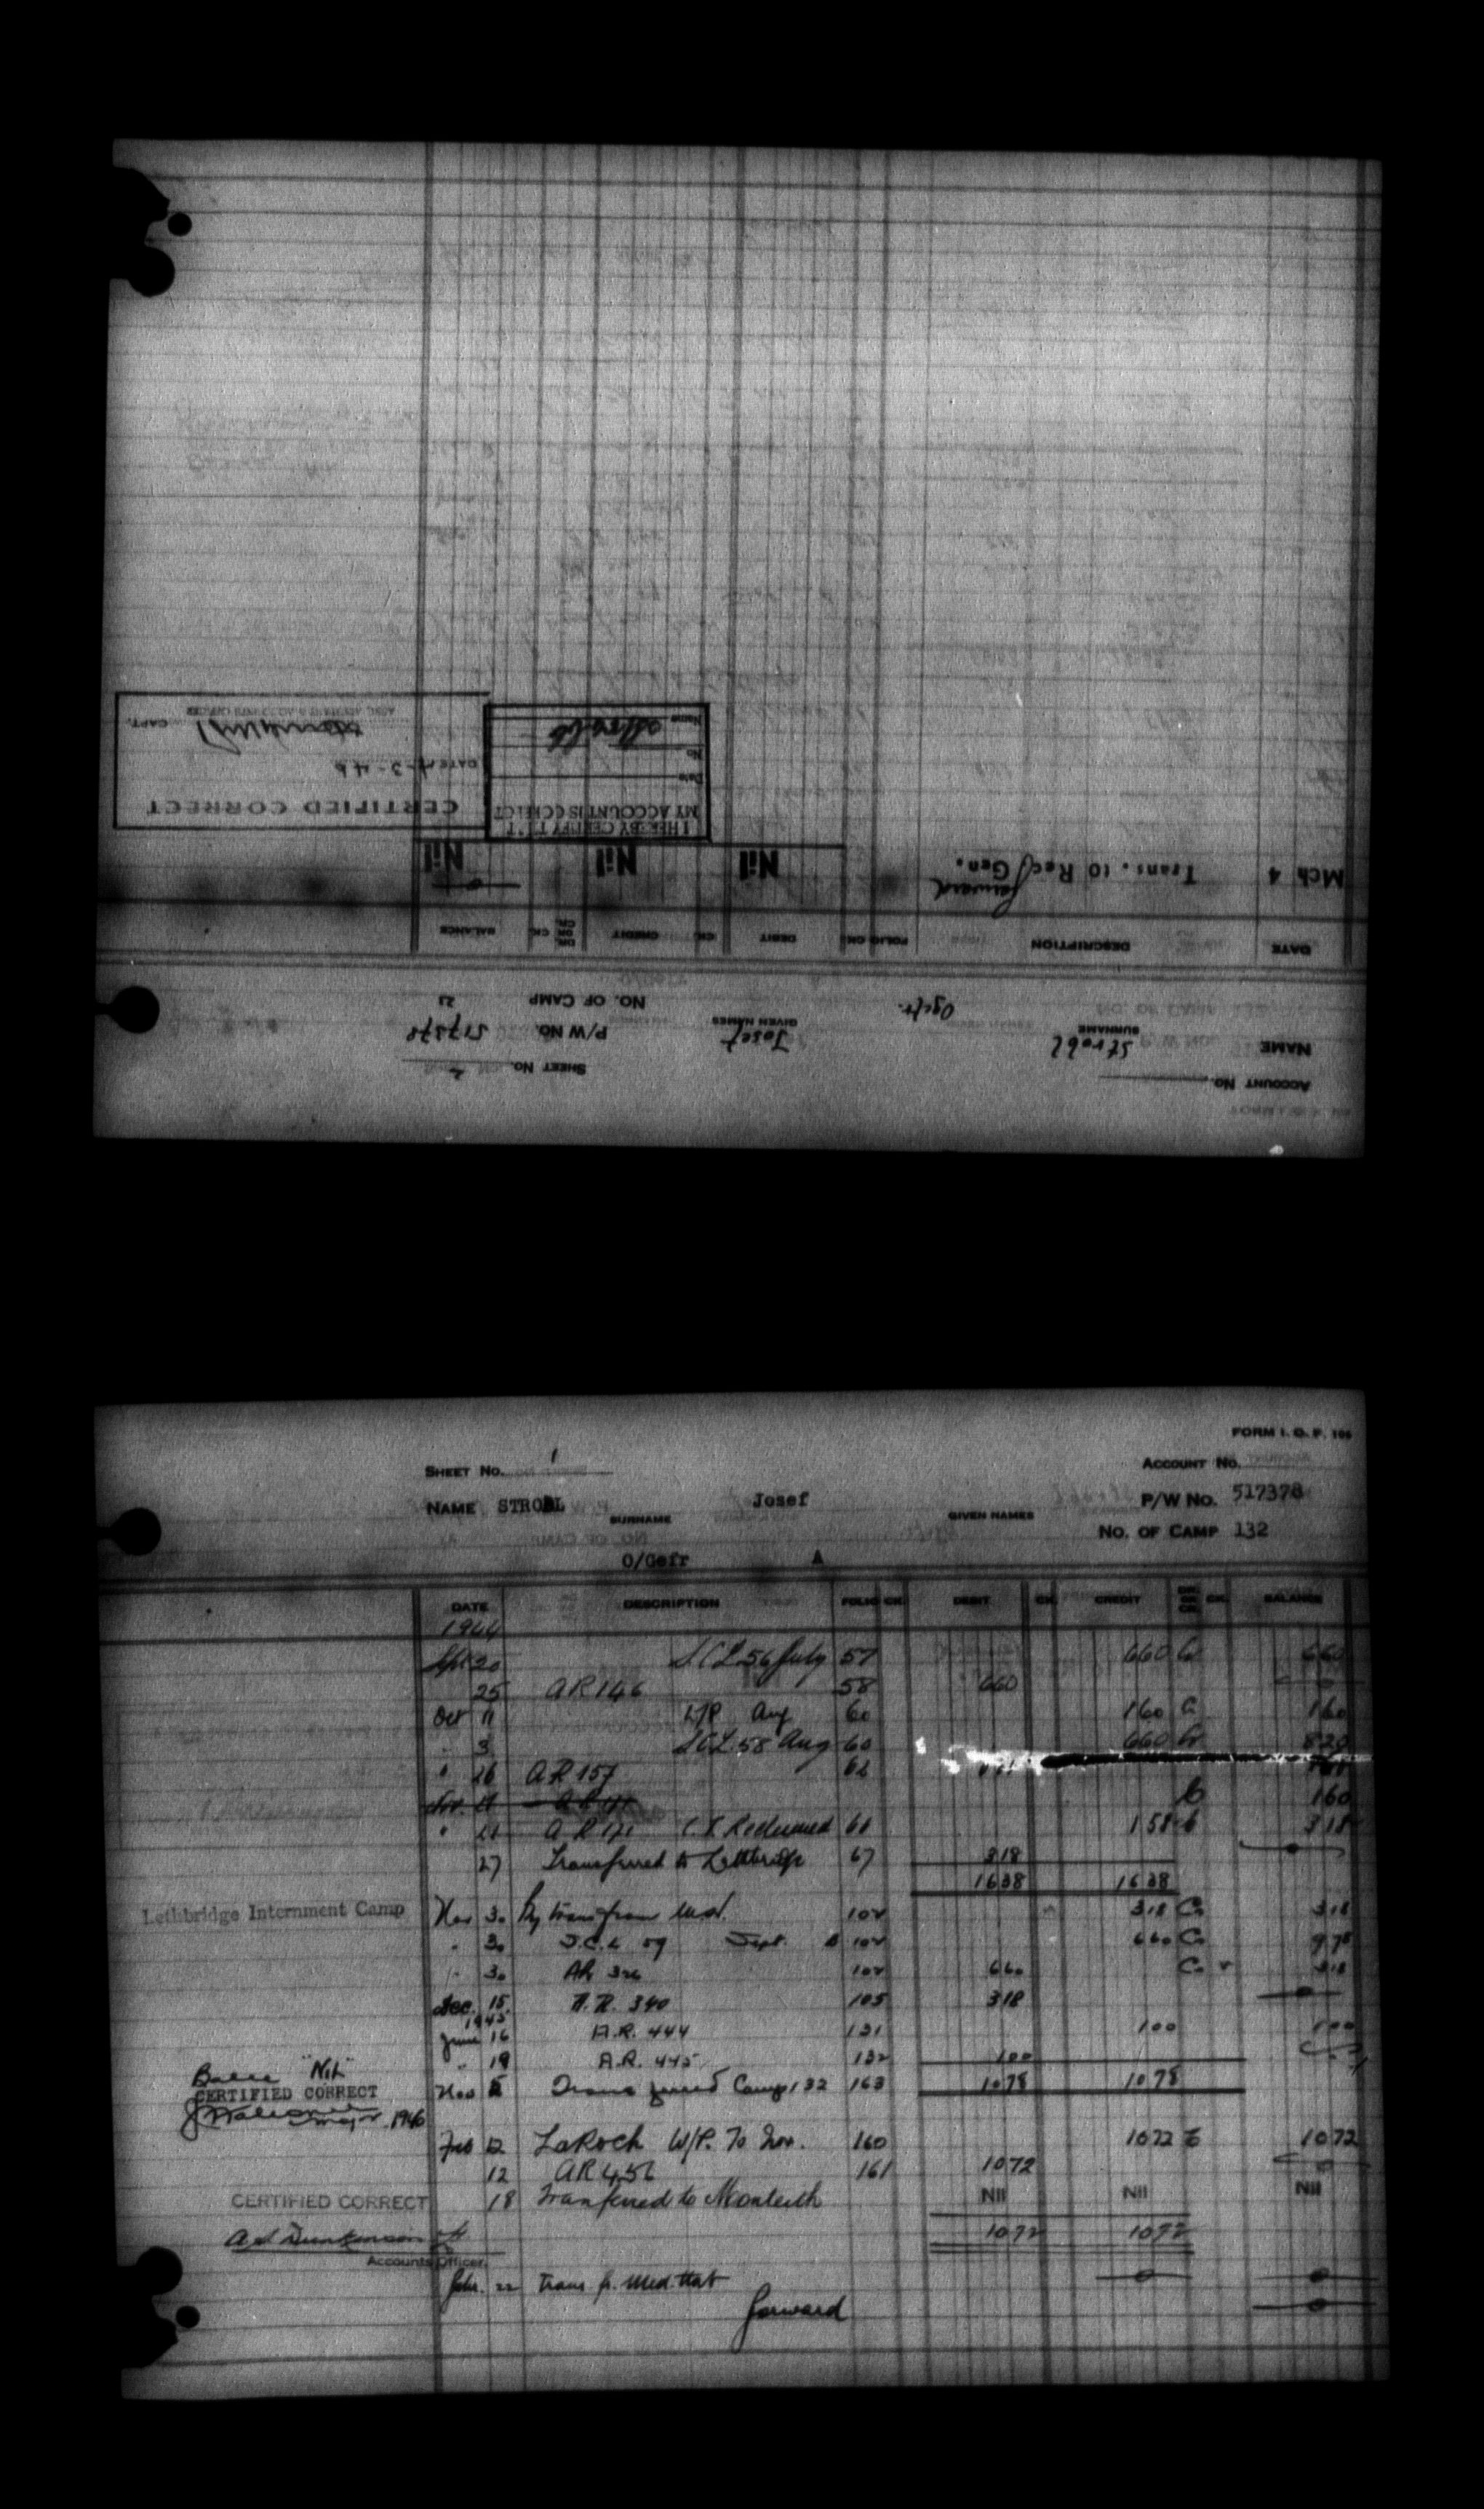 ACCOUNT No.
SHEET No. 2
NAME Strobl Josef P/W No. 517378
SURNAME GIVEN NAMES
Ogefr. NO. OF CAMP 21
DATE DESCRIPTION FOLIO CK. DEBIT CK. CREDIT DR. OR CR. CK. BALANCE
forward
Mch 4 Trans. to Rec/Gen. Nil Nil Nil
I HEREBY CERTIFY THAT
MY ACCOUNT IS CORRECT
Date
No.
Name
CERTIFIED CORRECT
DATE 4-3-46
CAPT.
FORM I. O. P. 106
SHEET No. 1 ACCOUNT No.
NAME STROBL Josef P/W No. 517378
SURNAME GIVEN NAMES
NO. OF CAMP 132
O/Gefr A
DATE DESCRIPTION FOLIO CK. DEBIT CK. CREDIT DR. OR CR. CK. BALANCE
1944
Spt 20 SCL 56 July 57 660 Cr 660
25 AR 146 58 660
Oct 11 W/P Aug 60 160 160
3 SCL 58 Aug 60 660 Cr 820
" 26 AR 157
Nov. 160
" 21 AR 171 C.T. Redeemed 61 158 318
27 Transferred to Lethbridge 67 318
1638 1638
Lethbridge Internment Camp
Nov 30 By trans from Med. 102 318 Cr 318
" 30 S.C.L 59 Sept. 102 660 Cr 978
" 30 AR 326 102 660 Cr 318
Dec. 15. A.R. 340 105 318
1945
June 16 A.R. 444 131 100 100
" 19 A.R. 445 132 100
Balce "Nil"
CERTIFIED CORRECT
Major 1946
Nov 5 Transferred Camp 132 163 1078 1078
Feb 12 LaRoch W/P. To Nov. 160 1072 1072
12 AR 456 161 1072
CERTIFIED CORRECT
18 Transferred to Monteith Nil Nil Nil
1072 1072
Accounts Officer.
Febr. 22 Trans fr. Med. Hat
forward